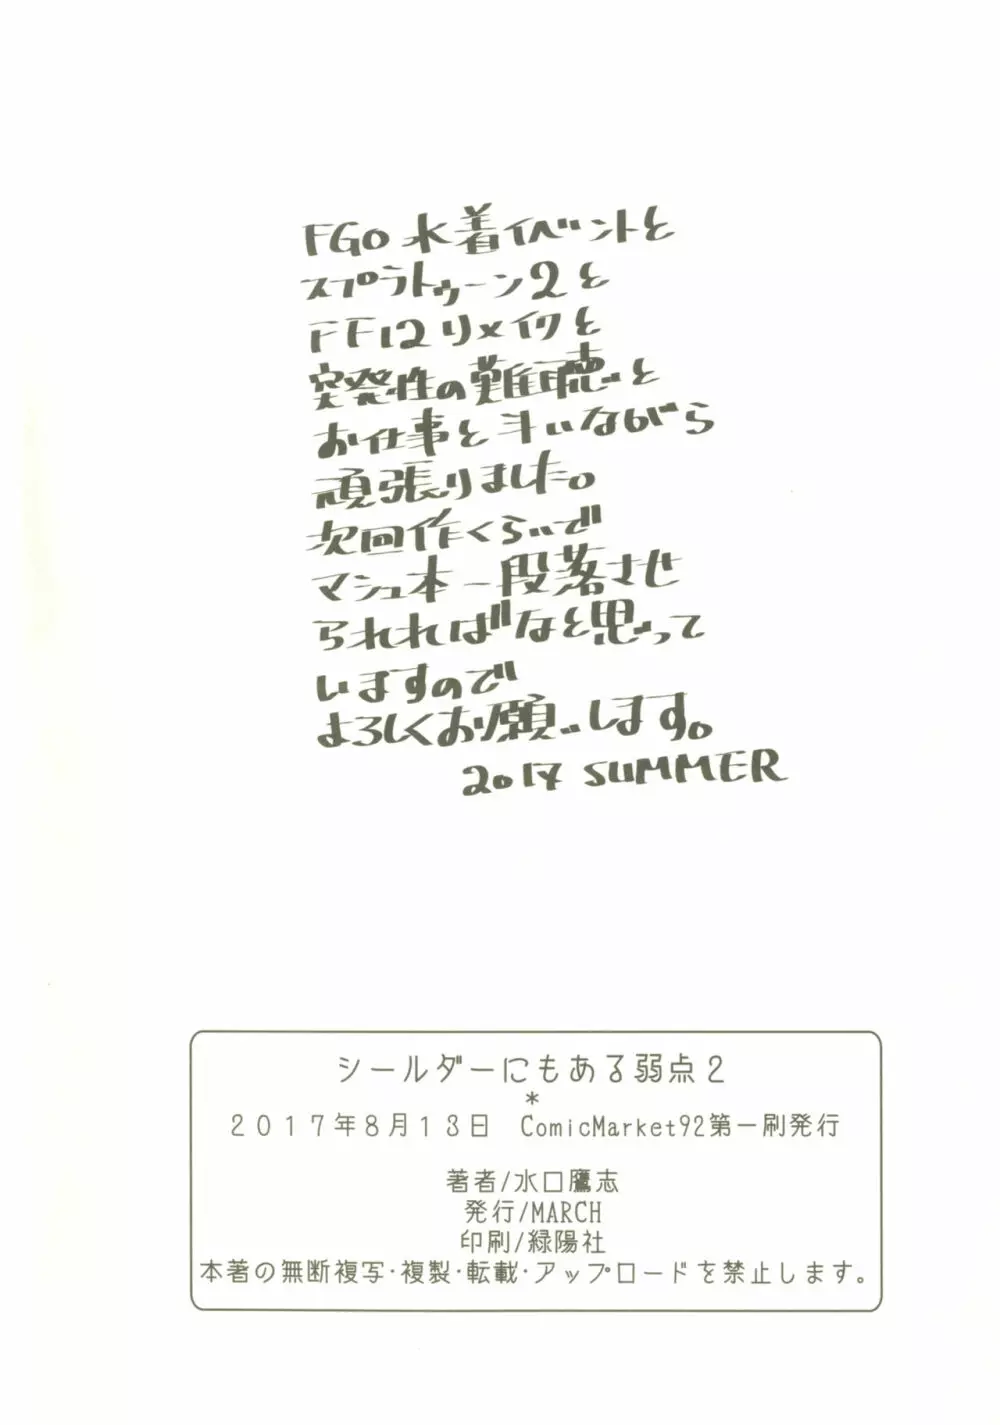 FGO 水着イベントと
スプラトゥーン2と
FF12リメイクと
突発性の難聴と
お仕事と手いながら
頑張りました。
次回作くらいで
マシュ本一段落させ
られればなと思って
いますので
よろしくお願いします。
2017 SUMMER
シールダーにもある弱点2
*
2017年8月13日 ComicMarket92第一刷発行
著者/水口鷹志
発行/MARCH
印刷/緑陽社
本著の無断複写・複製・転載・アップロードを禁止します。